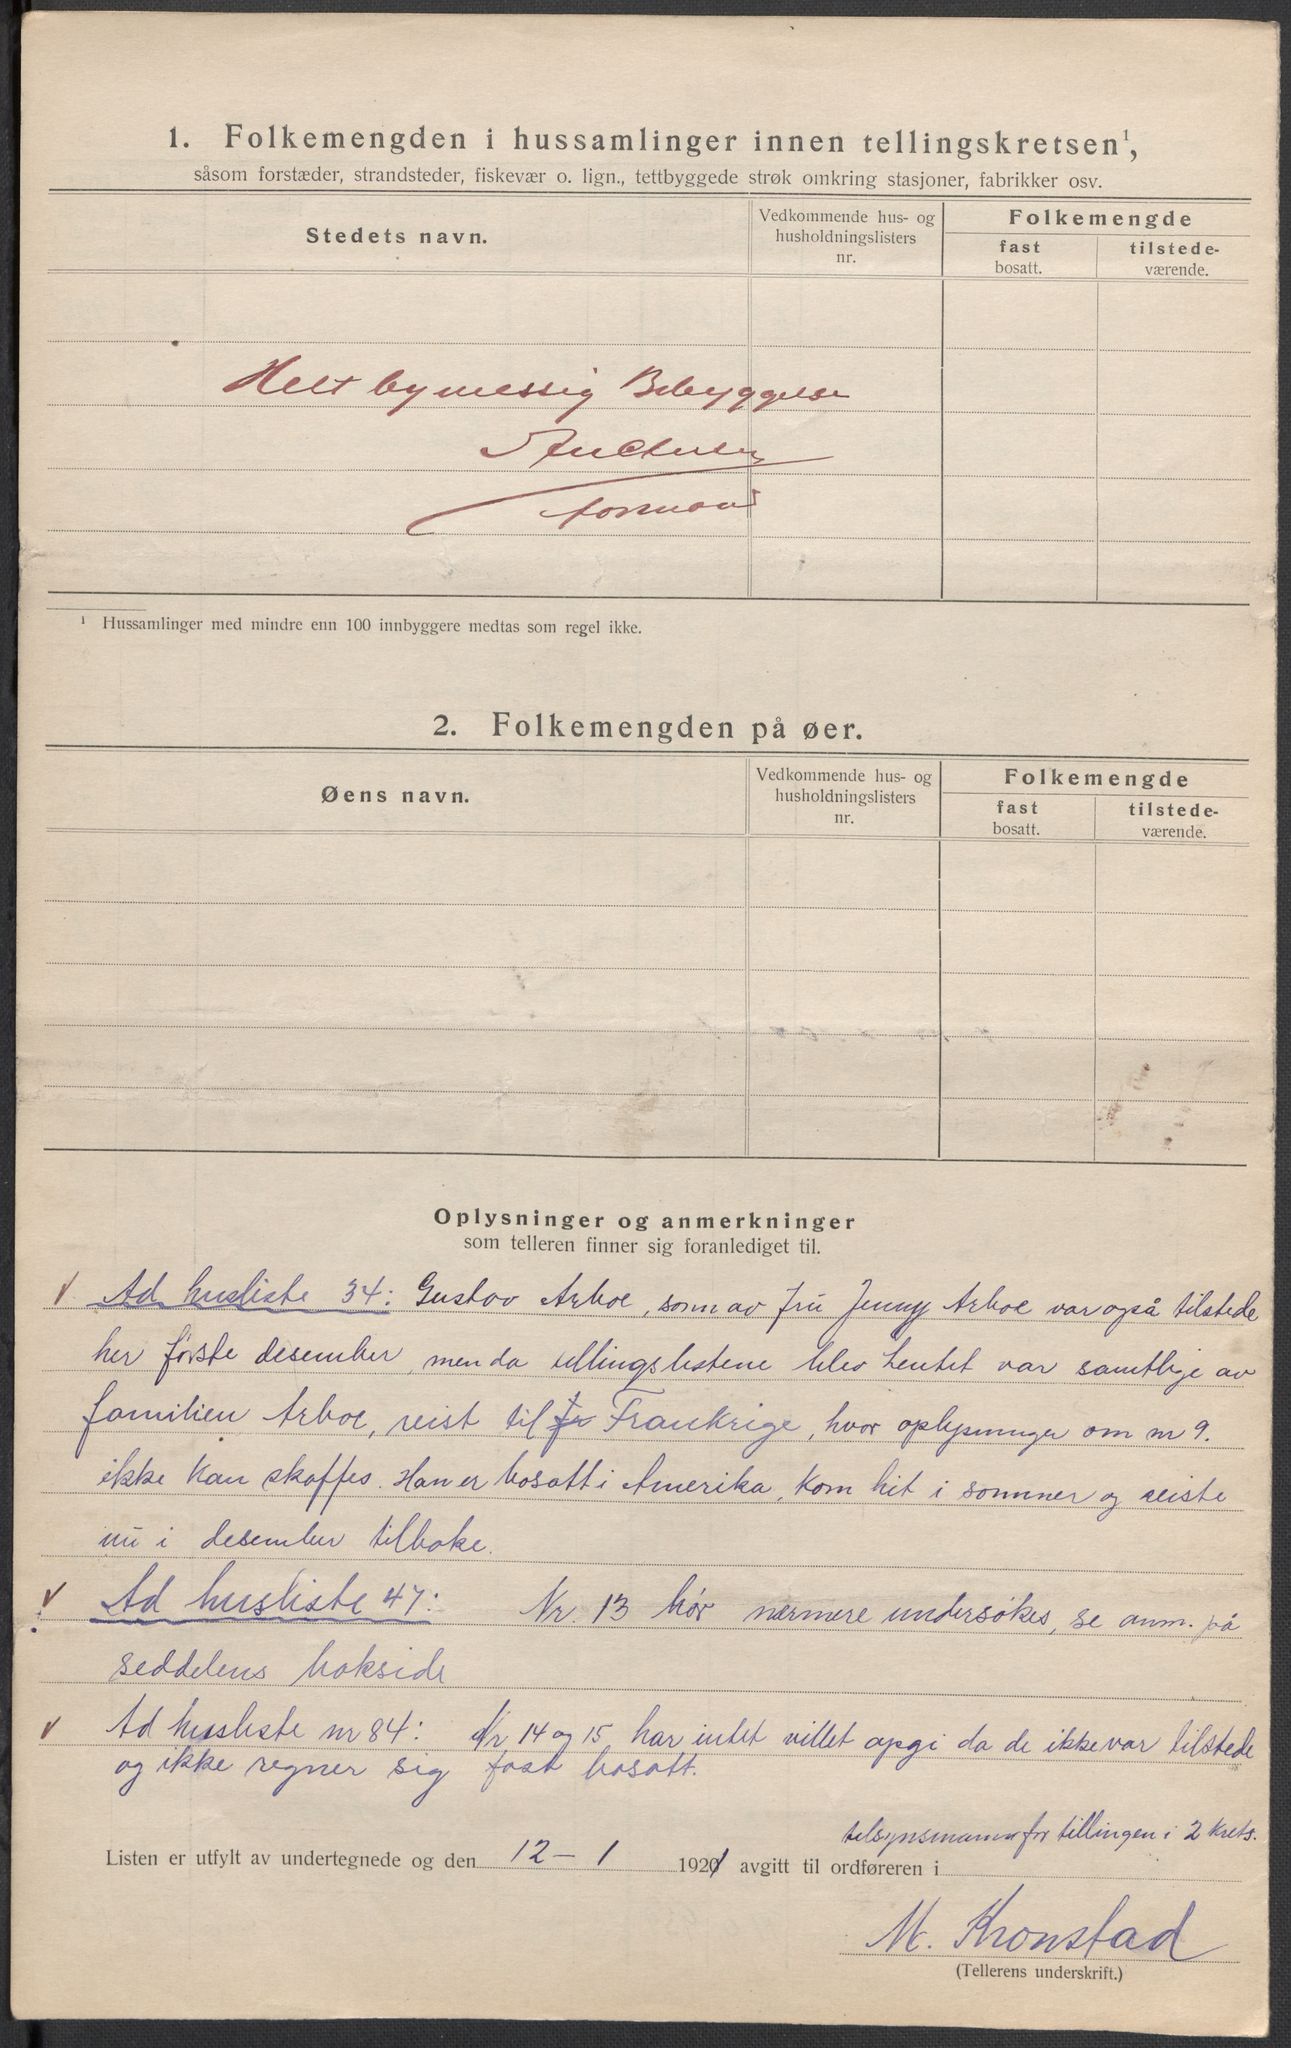 1. Folkemengden i hussamlinger innen tellingskretsen¹,
såsom forstæder, strandsteder, fiskevær o. lign., tettbyggede strøk omkring stasjoner, fabrikker osv.
Stedets navn.
Vedkommende hus- og
husholdningslisters
nr.
Folkemengde
fast
bosatt.
tilstede-
værende.
Helt bymessig Bebyggelse
formand
¹ Hussamlinger med mindre enn 100 innbyggere medtas som regel ikke.
2. Folkemengden på øer.
Øens navn.
Vedkommende hus- og
husholdningslisters
nr.
Folkemengde
fast
bosatt.
tilstede-
værende.
Oplysninger og anmerkninger
som telleren finner sig foranlediget til.
Ad husliste 34: Gustav Arboe, sønn av fru Jenny Arboe var også tilstede
her første desember, men da tellingslistene blev hentet var samtlige av
familien Arboe, reist til fr Frankrige, hvor oplysninger om nr 9.
ikke kan skaffes. Han er bosatt i Amerika, kom hit i sommer og reiste
nu i desember tilbake.
Ad husliste 47: Nr. 13 bør nærmere undersøkes, se anm. på
seddelens bakside
Ad husliste nr 84: Nr 14 og 15 har intet villet opgi da de ikke var tilstede
og ikke regner sig fast bosatt.
tilsynsmann for tellingen i 2 krets.
Listen er utfylt av undertegnede og den 12 – 1 1921 avgitt til ordføreren i
M. Kronstad
(Tellerens underskrift.)